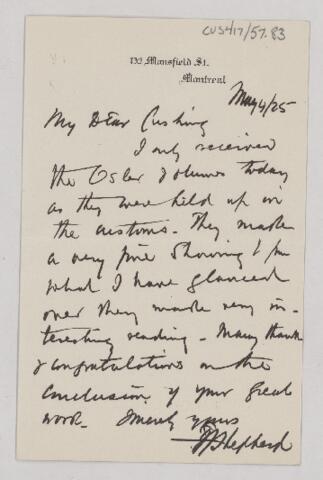 CUS417/57.83
132 Mansfield St.
Montreal
May 4/25
My Dear Cushing
I only received
the Osler volumes today
as they were held up in
the customs. They make
a very fine showing & from
what I have glanced
over they make very in-
teresting reading - Many thanks
& congratulations on the
conclusion of your great
work. Sincerely yours
FJ Shepherd